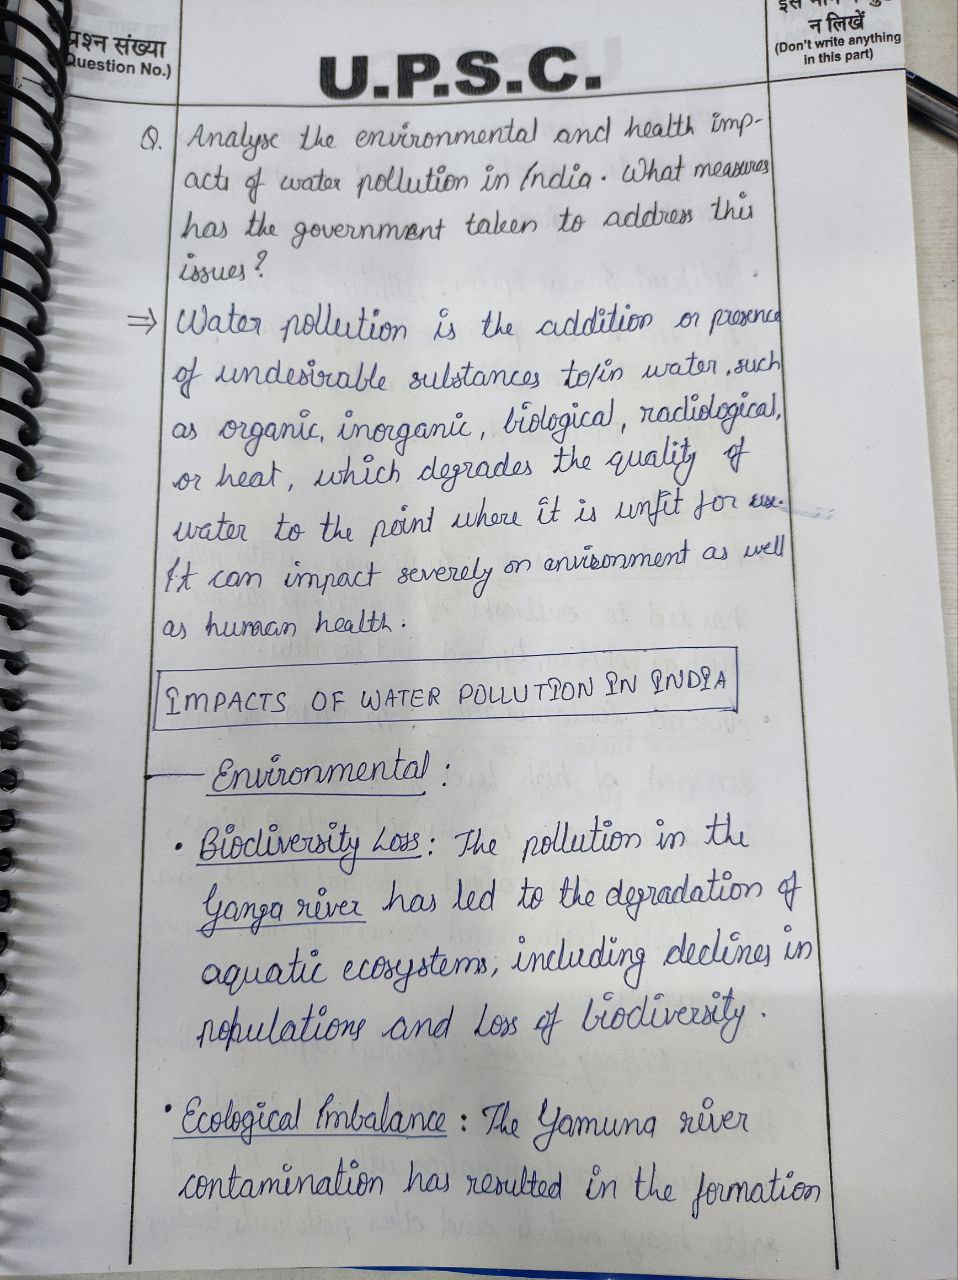 प्रश्न संख्या
Question No.)
U.P.S.C.
न लिखें
(Don't write anything
in this part)
Q. Analyse the environmental and health imp-
acts of water pollution in India. What measures
has the government taken to address this
issues?
⇒ Water pollution is the addition or presence
of undesirable substances to/in water, such
as organic, inorganic, biological, radiological,
or heat, which degrades the quality of
water to the point where it is unfit for use.
It can impact severely on environment as well
as human health.
IMPACTS OF WATER POLLUTION IN INDIA
Environmental :
• Biodiversity Loss : The pollution in the
Ganga river has led to the degradation of
aquatic ecosystems, including declines in
populations and loss of biodiversity.
• Ecological Imbalance : The Yamuna river
contamination has resulted in the formation